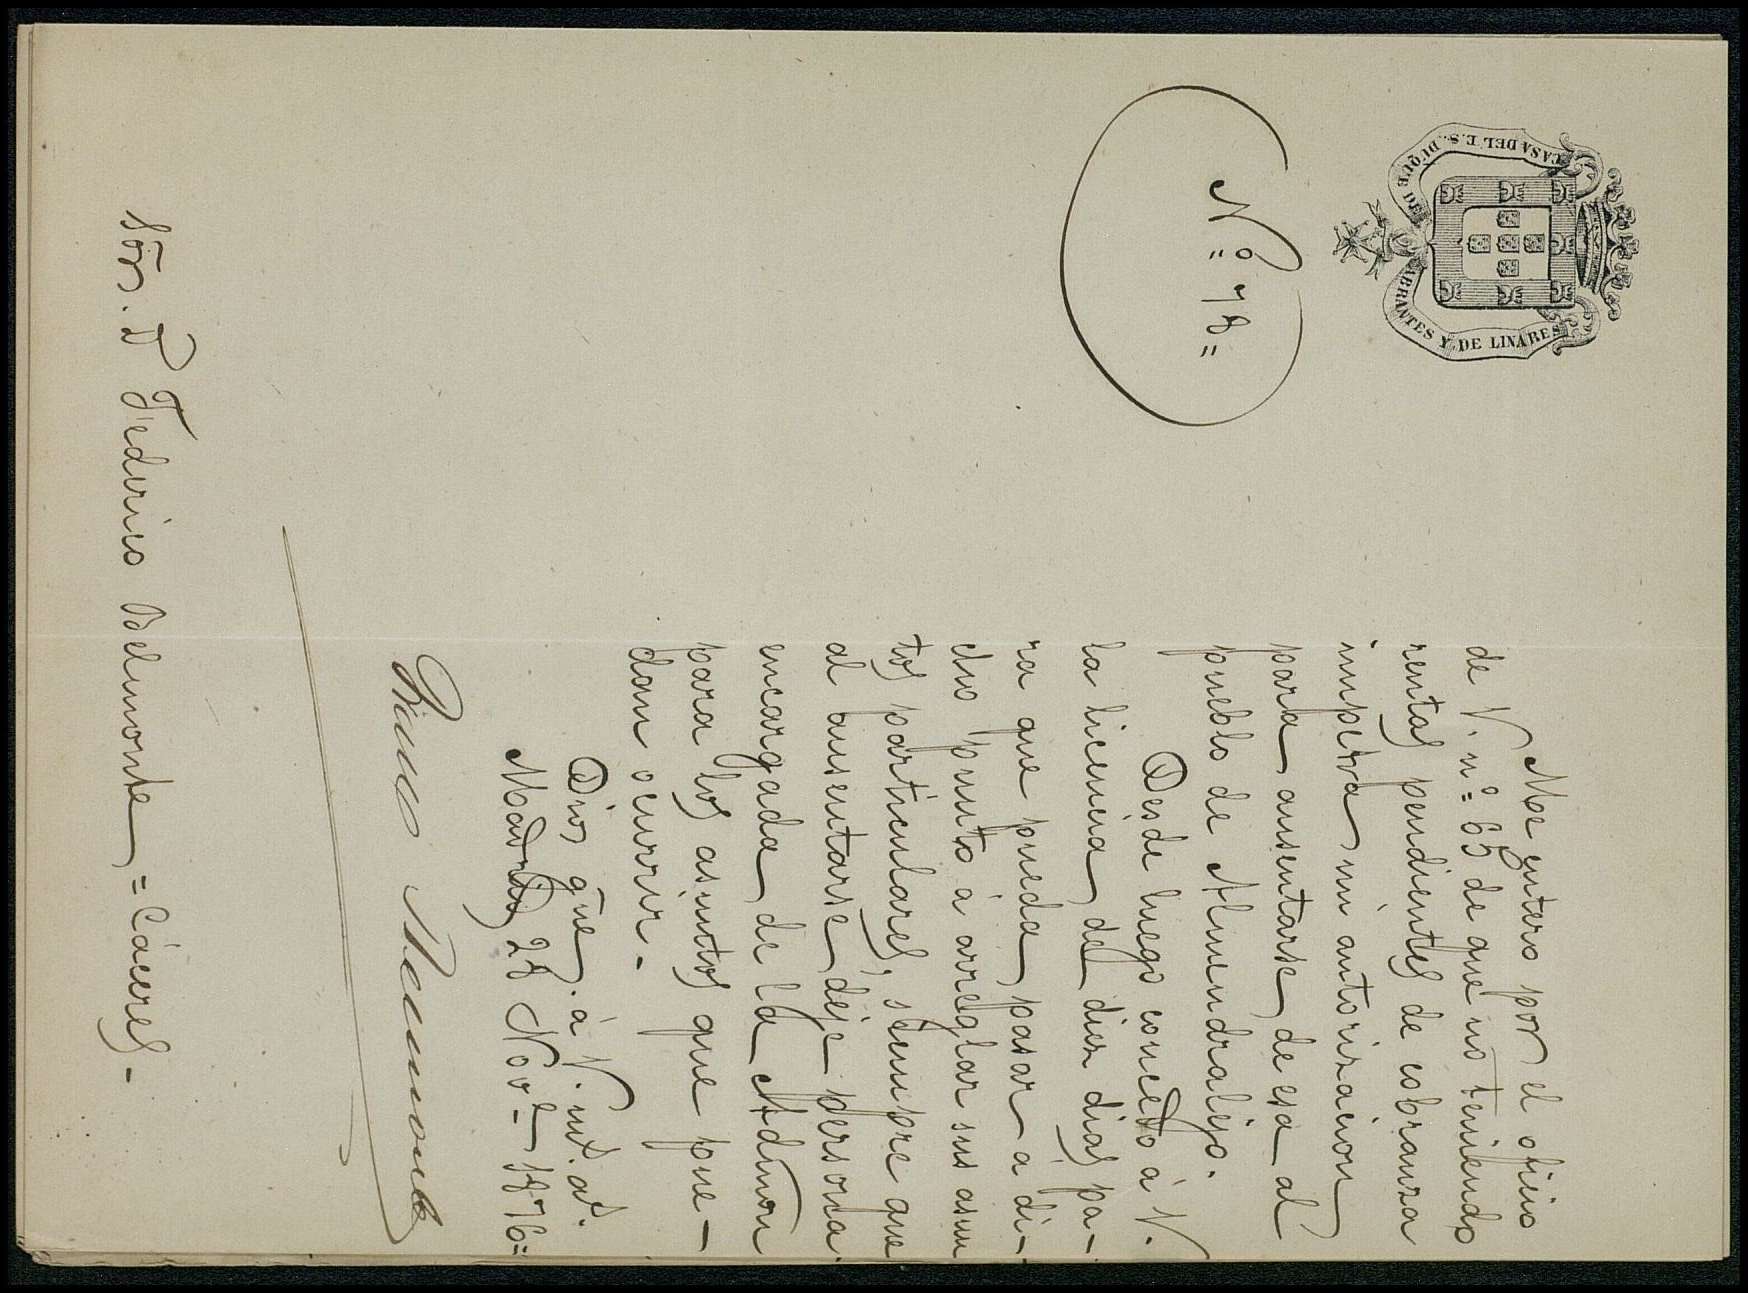 CASA DEL E. S. DUQUE DE ABRANTES Y DE LINARES
Nº 78=
Me entero por el oficio
de V. nº 65 de que no teniendo
rentas pendientes de cobranza
impetra mi autorizacion
para ausentarse de esa al
pueblo de Almendralejo.
Desde luego concedo à V.
la licencia de diez dias pa-
ra que pueda pasar à di-
cho punto à arreglar sus asun
tos particulares, siempre que
al ausentarse deje persona
encargada de la Admon
para los asuntos que pue-
dan ocurrir.-
Dios gue. à V. ms. as.
Madrid 28 Nove 1876=
Sor. D Federico Belmonte = Cáceres-